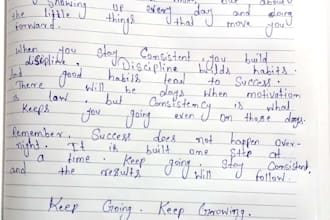 showing up every day and doing
the little things that move you
forward.
When you stay Consistent, you build
discipline. Discipline builds habits.
And good habits lead to Success.
There will be days when motivation
is low, but Consistency is what
Keeps you going even on those days.
Remember, Success does not happen over-
night. It is built one step at
a time. Keep going. Stay Consistent,
and the results will follow.
Keep Going. Keep Growing.